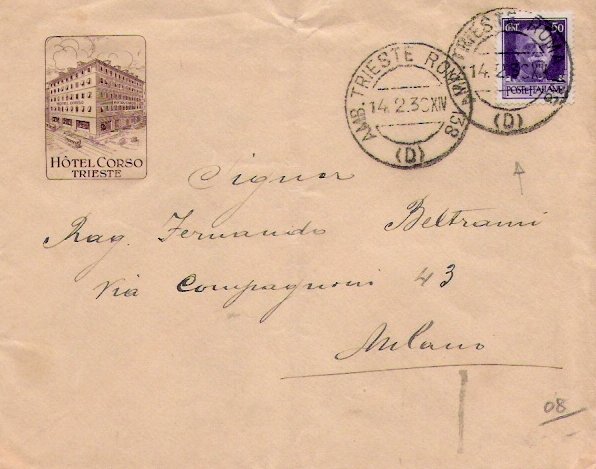 HÔTEL CORSO
TRIESTE
AMB. TRIESTE ROMA 38
14.2.36 XIV
(D)
AMB. TRIESTE ROMA 38
14.2.36 XIV
(D)
CENT. 50
POSTE ITALIANE
Signor
Rag. Fernando Beltrami
via Compagnoni 43
Milano
08